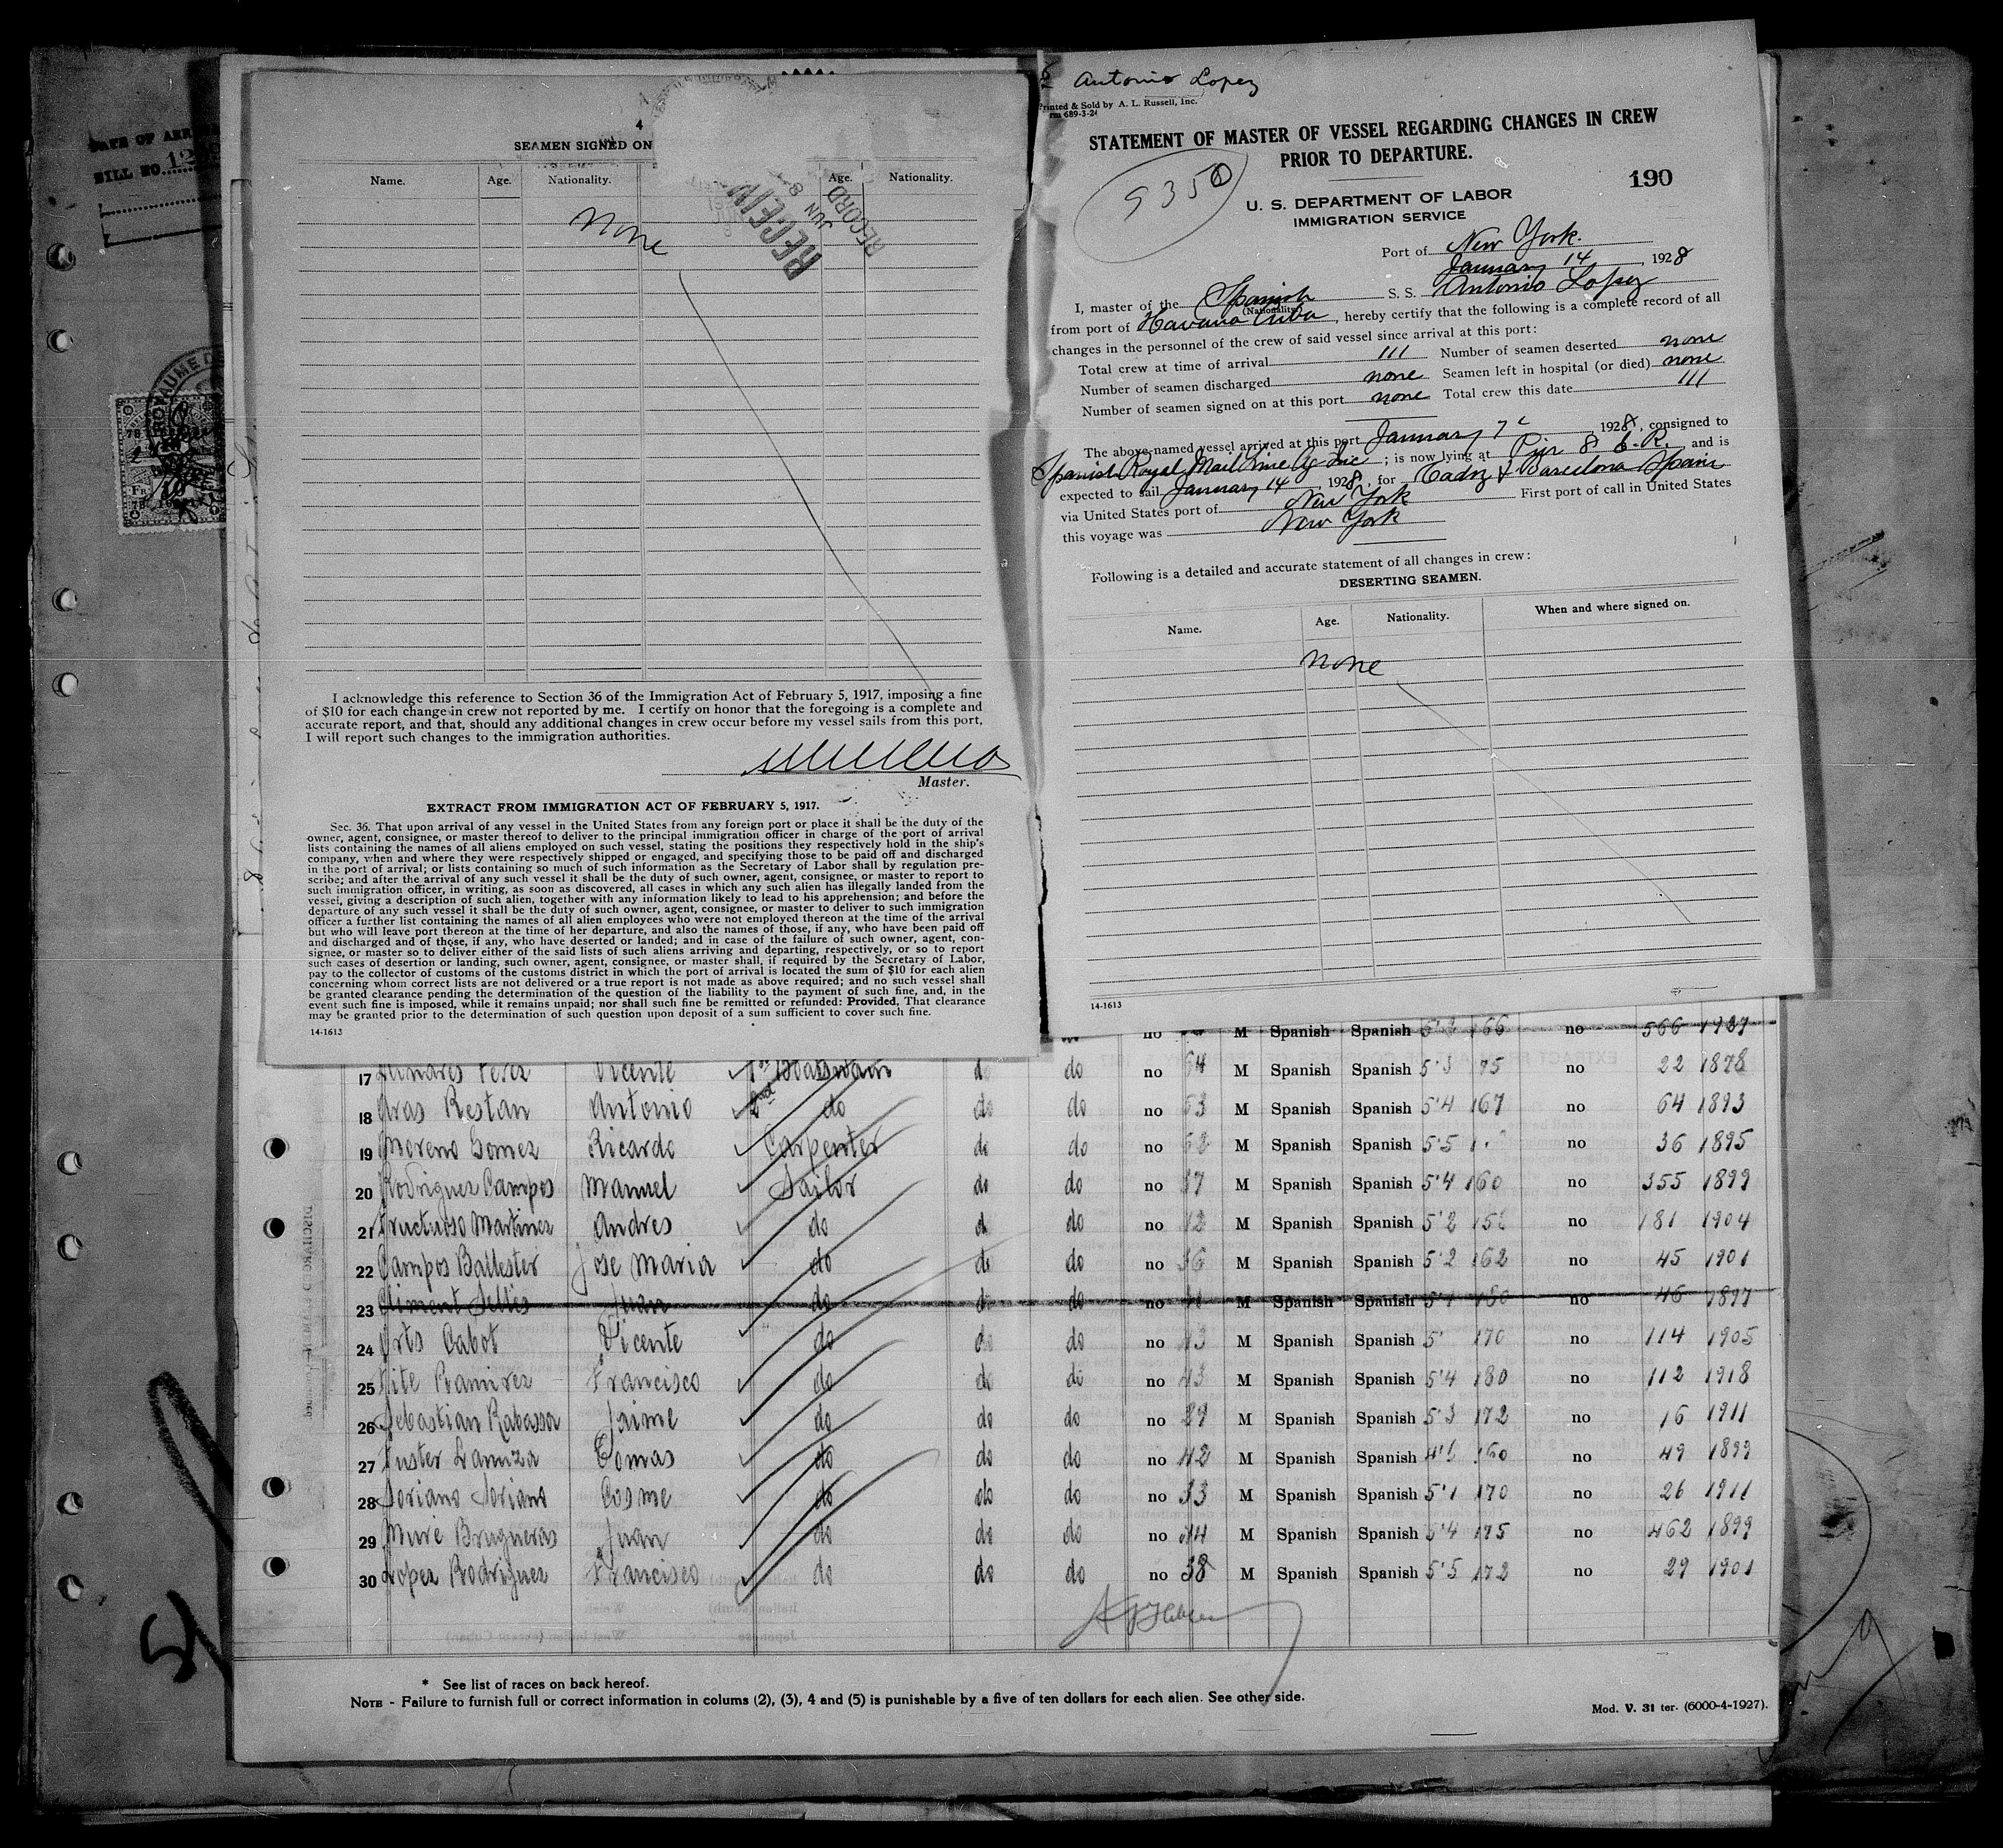 DATE OF
BILL NO. 12
4
SEAMEN SIGNED ON
Name. Age. Nationality. Age. Nationality.
None
RECEIV
JUN 8
RECORD
I acknowledge this reference to Section 36 of the Immigration Act of February 5, 1917, imposing a fine
of $10 for each change in crew not reported by me. I certify on honor that the foregoing is a complete and
accurate report, and that, should any additional changes in crew occur before my vessel sails from this port,
I will report such changes to the immigration authorities.
Master.
EXTRACT FROM IMMIGRATION ACT OF FEBRUARY 5, 1917.
Sec. 36. That upon arrival of any vessel in the United States from any foreign port or place it shall be the duty of the
owner, agent, consignee, or master thereof to deliver to the principal immigration officer in charge of the port of arrival
lists containing the names of all aliens employed on such vessel, stating the positions they respectively hold in the ship's
company, when and where they were respectively shipped or engaged, and specifying those to be paid off and discharged
in the port of arrival; or lists containing so much of such information as the Secretary of Labor shall by regulation pre-
scribe; and after the arrival of any such vessel it shall be the duty of such owner, agent, consignee, or master to report to
such immigration officer, in writing, as soon as discovered, all cases in which any such alien has illegally landed from the
vessel, giving a description of such alien, together with any information likely to lead to his apprehension; and before the
departure of any such vessel it shall be the duty of such owner, agent, consignee, or master to deliver to such immigration
officer a further list containing the names of all alien employees who were not employed thereon at the time of the arrival
but who will leave port thereon at the time of her departure, and also the names of those, if any, who have been paid off
and discharged and of those, if any, who have deserted or landed; and in case of the failure of such owner, agent, con-
signee, or master so to deliver either of the said lists of such aliens arriving and departing, respectively, or so to report
such cases of desertion or landing, such owner, agent, consignee, or master shall, if required by the Secretary of Labor,
pay to the collector of customs of the customs district in which the port of arrival is located the sum of $10 for each alien
concerning whom correct lists are not delivered or a true report is not made as above required; and no such vessel shall
be granted clearance pending the determination of the question of the liability to the payment of such fine, and, in the
event such fine is imposed, while it remains unpaid; nor shall such fine be remitted or refunded: Provided, That clearance
may be granted prior to the determination of such question upon deposit of a sum sufficient to cover such fine.
14-1613
Antonio Lopez
Printed & Sold by A. L. Russell, Inc.
rm 689-3-24
STATEMENT OF MASTER OF VESSEL REGARDING CHANGES IN CREW
PRIOR TO DEPARTURE.
9350
190
U. S. DEPARTMENT OF LABOR
IMMIGRATION SERVICE
Port of New York.
January 14, 1928
I, master of the Spanish S. S. Antonio Lopez
(Nationality)
from port of Havana Cuba, hereby certify that the following is a complete record of all
changes in the personnel of the crew of said vessel since arrival at this port:
Total crew at time of arrival 111 Number of seamen deserted none
Number of seamen discharged none Seamen left in hospital (or died) none
Number of seamen signed on at this port none Total crew this date 111
The above-named vessel arrived at this port January 7 1928, consigned to
Spanish Royal Mail Line Ag Inc; is now lying at Pier 8 E. R. and is
expected to sail January 14, 1928, for Cadiz & Barcelona Spain
via United States port of New York First port of call in United States
this voyage was New York
Following is a detailed and accurate statement of all changes in crew:
DESERTING SEAMEN.
Name. Age. Nationality. When and where signed on.
none
14-1613
no M Spanish Spanish 166 no 566 1927
17 Perez Vicente 1st Boatswain do do no 54 M Spanish Spanish 5'3 175 no 22 1878
18 Aras Restan Antonio 2nd do do do no 53 M Spanish Spanish 5'4 167 no 64 1893
19 Moreno Gomez Ricardo Carpenter do do no 52 M Spanish Spanish 5'5 no 36 1895
20 Rodriguez Campos Manuel Sailor do do no 37 M Spanish Spanish 5'4 160 no 355 1899
21 Fructuoso Martinez Andres do do do no M Spanish Spanish 5'2 no 181 1904
22 Campos Ballester Jose Maria do do do no 36 M Spanish Spanish 5'2 162 no 45 1901
23 Climent Selles Juan do do do no M Spanish Spanish 180 no 46 1897
24 Orts Cabot Vicente do do do no 43 M Spanish Spanish 5' 170 no 114 1905
25 Ramirez Francisco do do do no 43 M Spanish Spanish 5'4 180 no 112 1918
26 Sebastian Rabassa Jaime do do do no 29 M Spanish Spanish 5'3 172 no 16 1911
27 Fuster Tomas do do do no 42 M Spanish Spanish 160 no 49 1899
28 Soriano Soriano Cosme do do do no 33 M Spanish Spanish 5'1 170 no 26 1911
29 Mure Brugueras Juan do do do no 44 M Spanish Spanish 5'4 175 no 462 1899
30 Lopez Rodriguez Francisco do do do no 38 M Spanish Spanish 5'5 172 no 29 1901
* See list of races on back hereof.
NOTE - Failure to furnish full or correct information in colums (2), (3), 4 and (5) is punishable by a five of ten dollars for each alien. See other side.
Mod. V. 31 ter. (6000-4-1927).